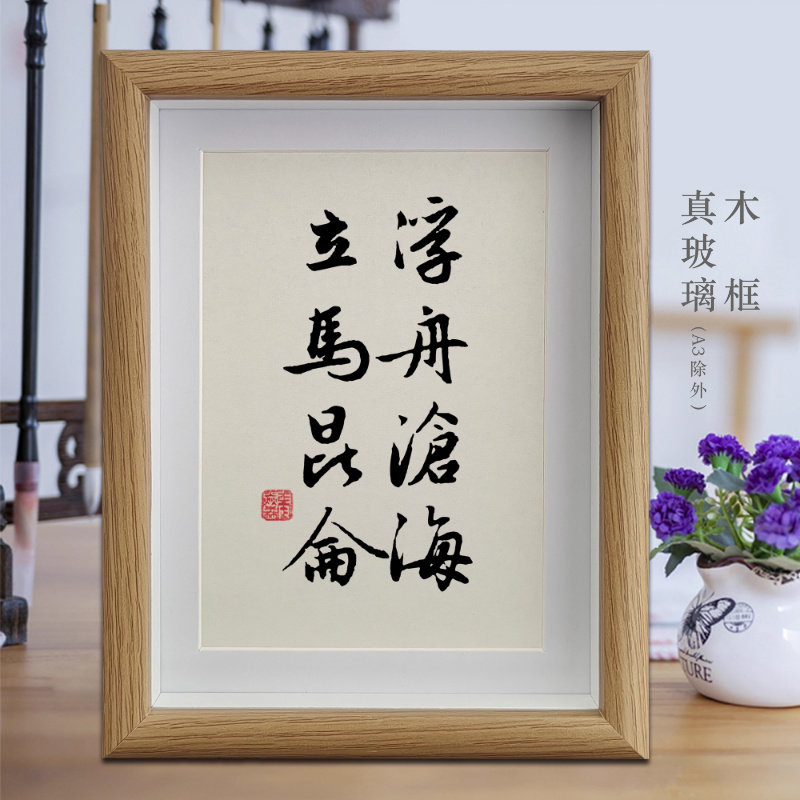 浮舟滄海
立馬昆侖
木框
真玻璃(A3除外)
TURE